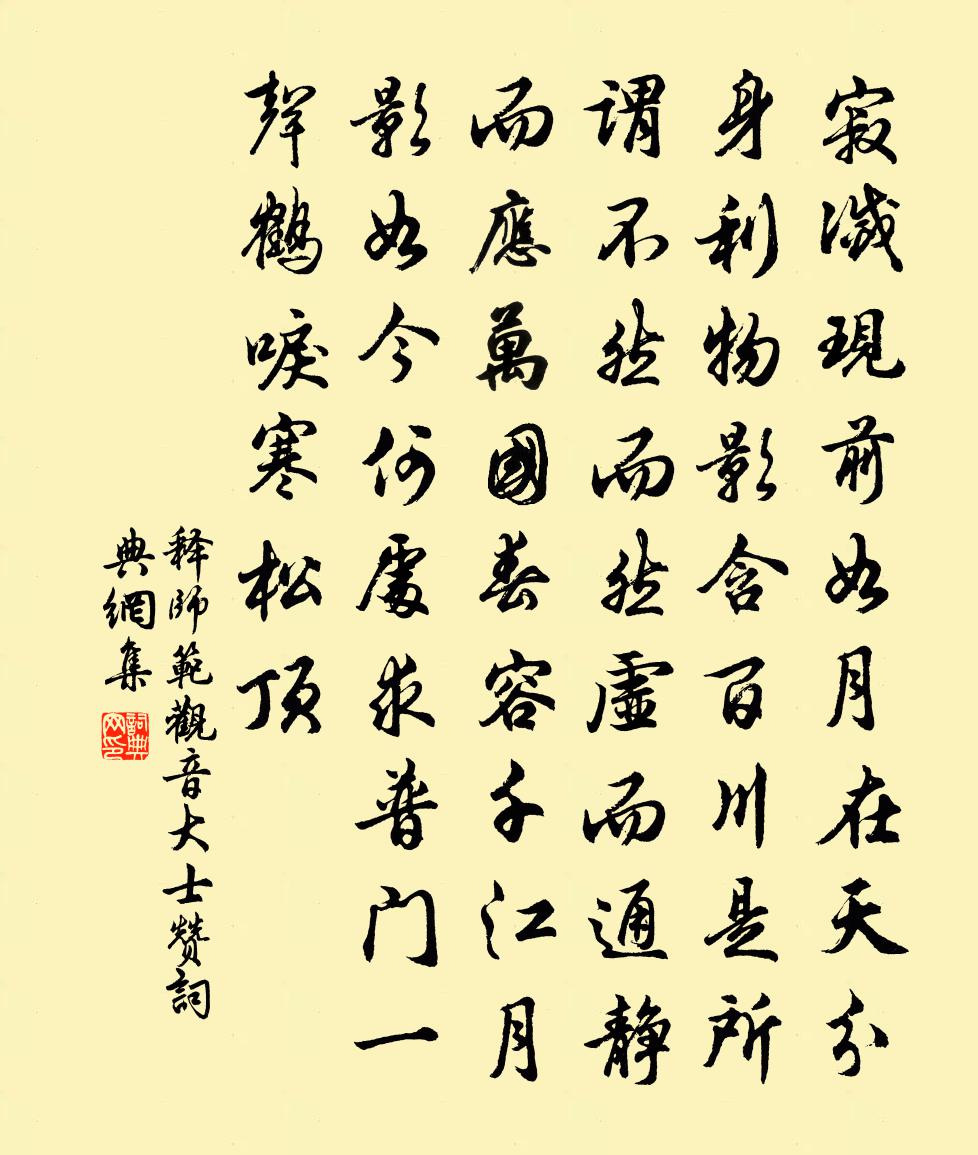 寂滅現前如月在天分
身利物影含百川是所
謂不然而然虛而通靜
而應萬國春容千江月
影如今何處求普門一
聲鶴唳寒松頂
释師範觀音大士赞詞
典網集
詞典網印